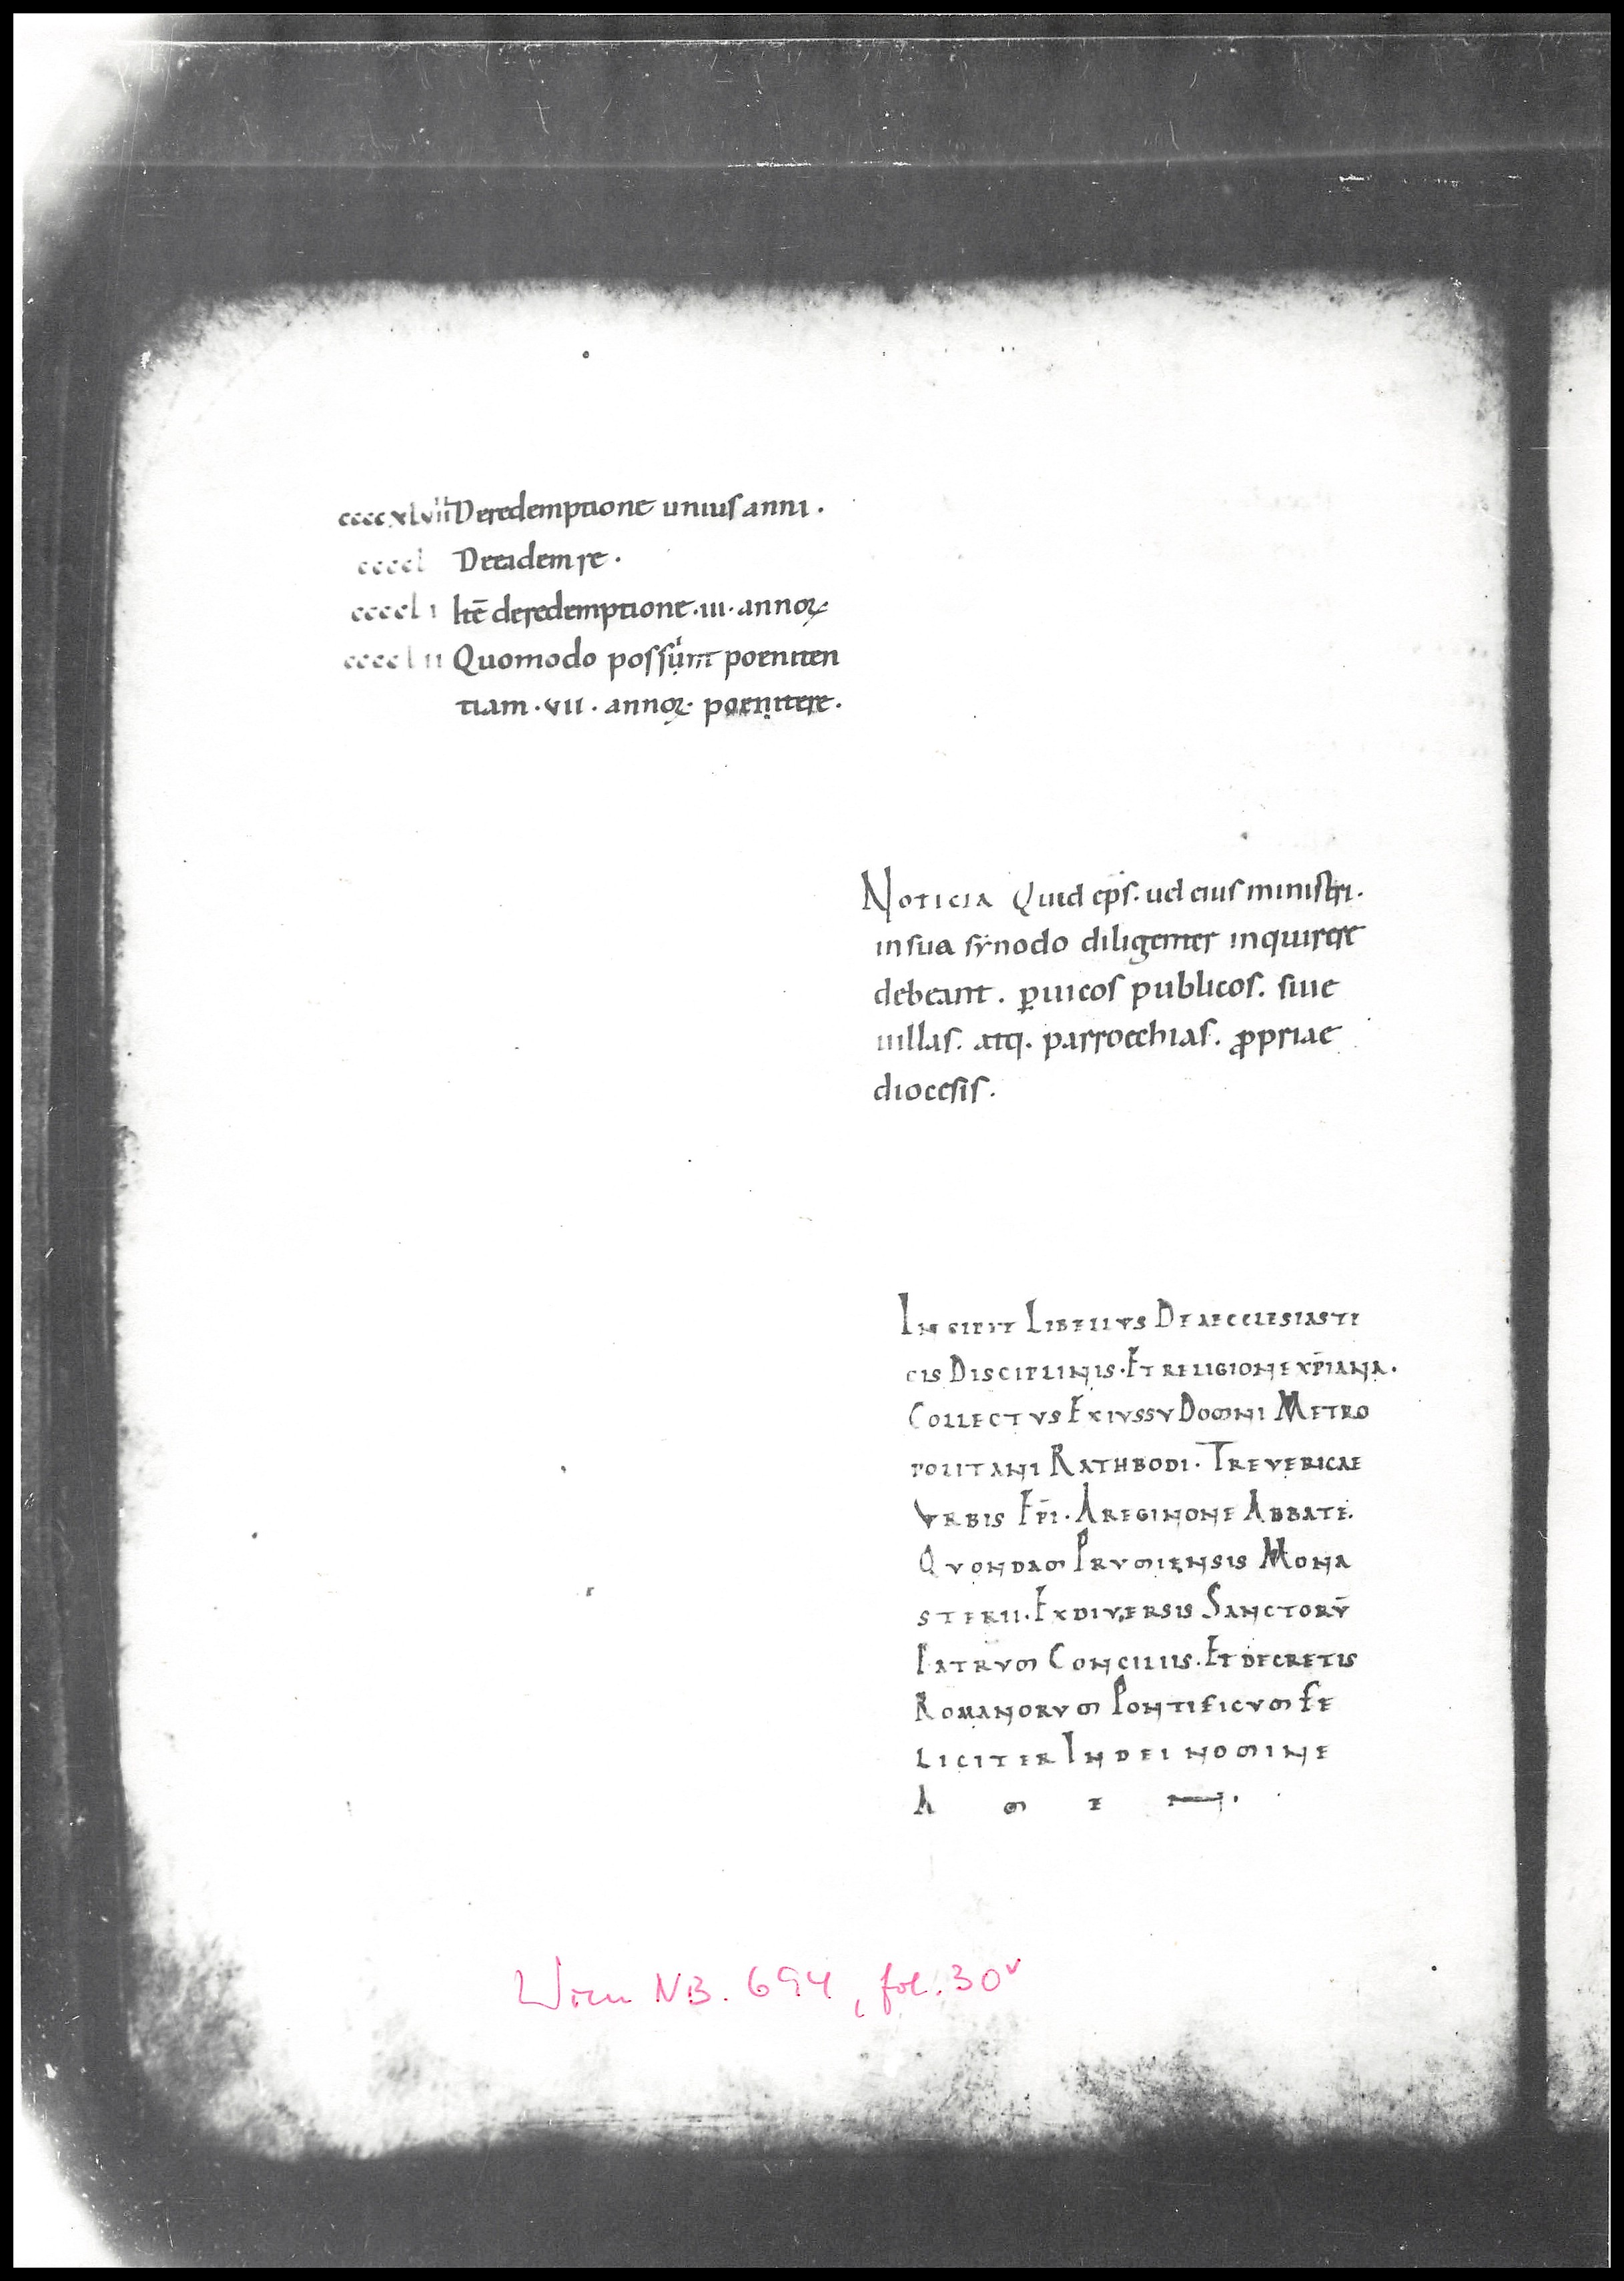 ccccxlviiii De redemptione unius anni .
ccccl De eadem re .
ccccli Itē de redemptione . iii . annoꝝ
cccclii Quomodo possunt poeniten
tiam . vii . annoꝝ . poenitere .
Noticia Quid ep̄s . uel eius ministri .
in sua sẏnodo diligenter inquirere
debeant . ꝑ uicos publicos . siue
uillas . atq . parroechias . ꝓpriae
diocesis .
INCIPIT LIBELLVS DE AECCLESIASTI
CIS DISCIPLINIS . ET RELIGIONE XP̄IANA .
COLLECTVS EX IVSSV DOMNI METRO
POLITANI RATHBODI . TREVERICAE
VRBIS EP̄I . A REGINONE ABBATE .
QVONDAM PRVMIENSIS MONA
STERII . EX DIVERSIS SANCTORV̄
PATRVM CONCILIIS . ET DECRETIS
ROMANORVM PONTIFICVM FE
LICITER IN DEI NOMINE
A M E N .
Wien NB. 694, fol. 30v